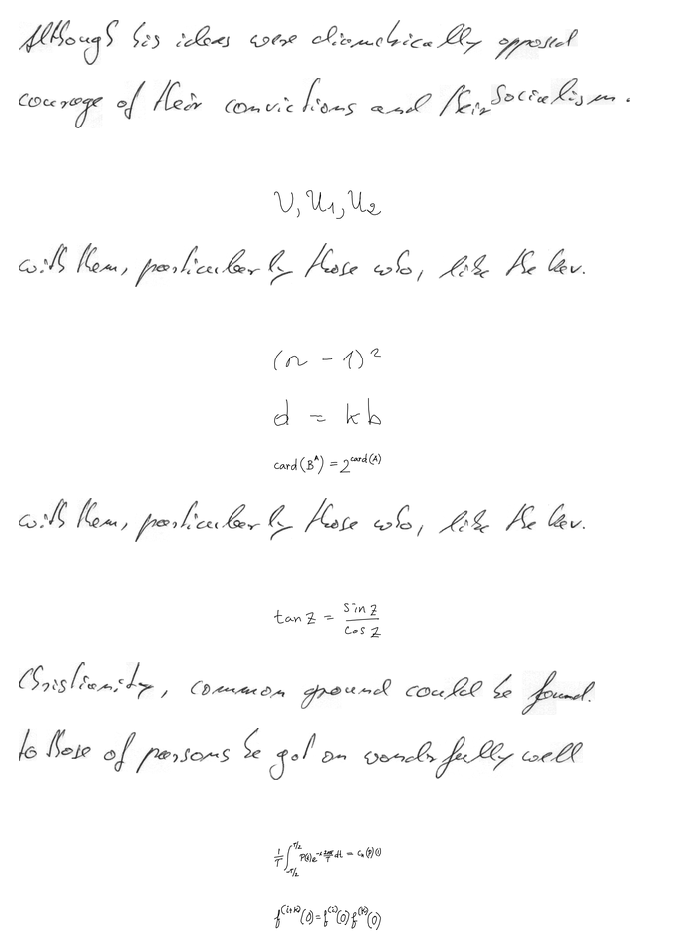 Although his ideas were diametrically opposed
courage of their convictions and their Socialism.
U, U₁, U₂
with them, particularly those who, like the Rev.
(n - 1)²
d = kb
card(B^A) = 2^{card(A)}
with them, particularly those who, like the Rev.
tan z = \frac{sin z}{cos z}
Christianity, common ground could be found.
to those of parsons he got on wonderfully well
\frac{1}{T} \int_{-T/2}^{T/2} P(t) e^{-i \frac{2πn}{T} t} dt = c_n
f^{(i+k)}(0) = f^{(i)}(0) f^{(k)}(0)